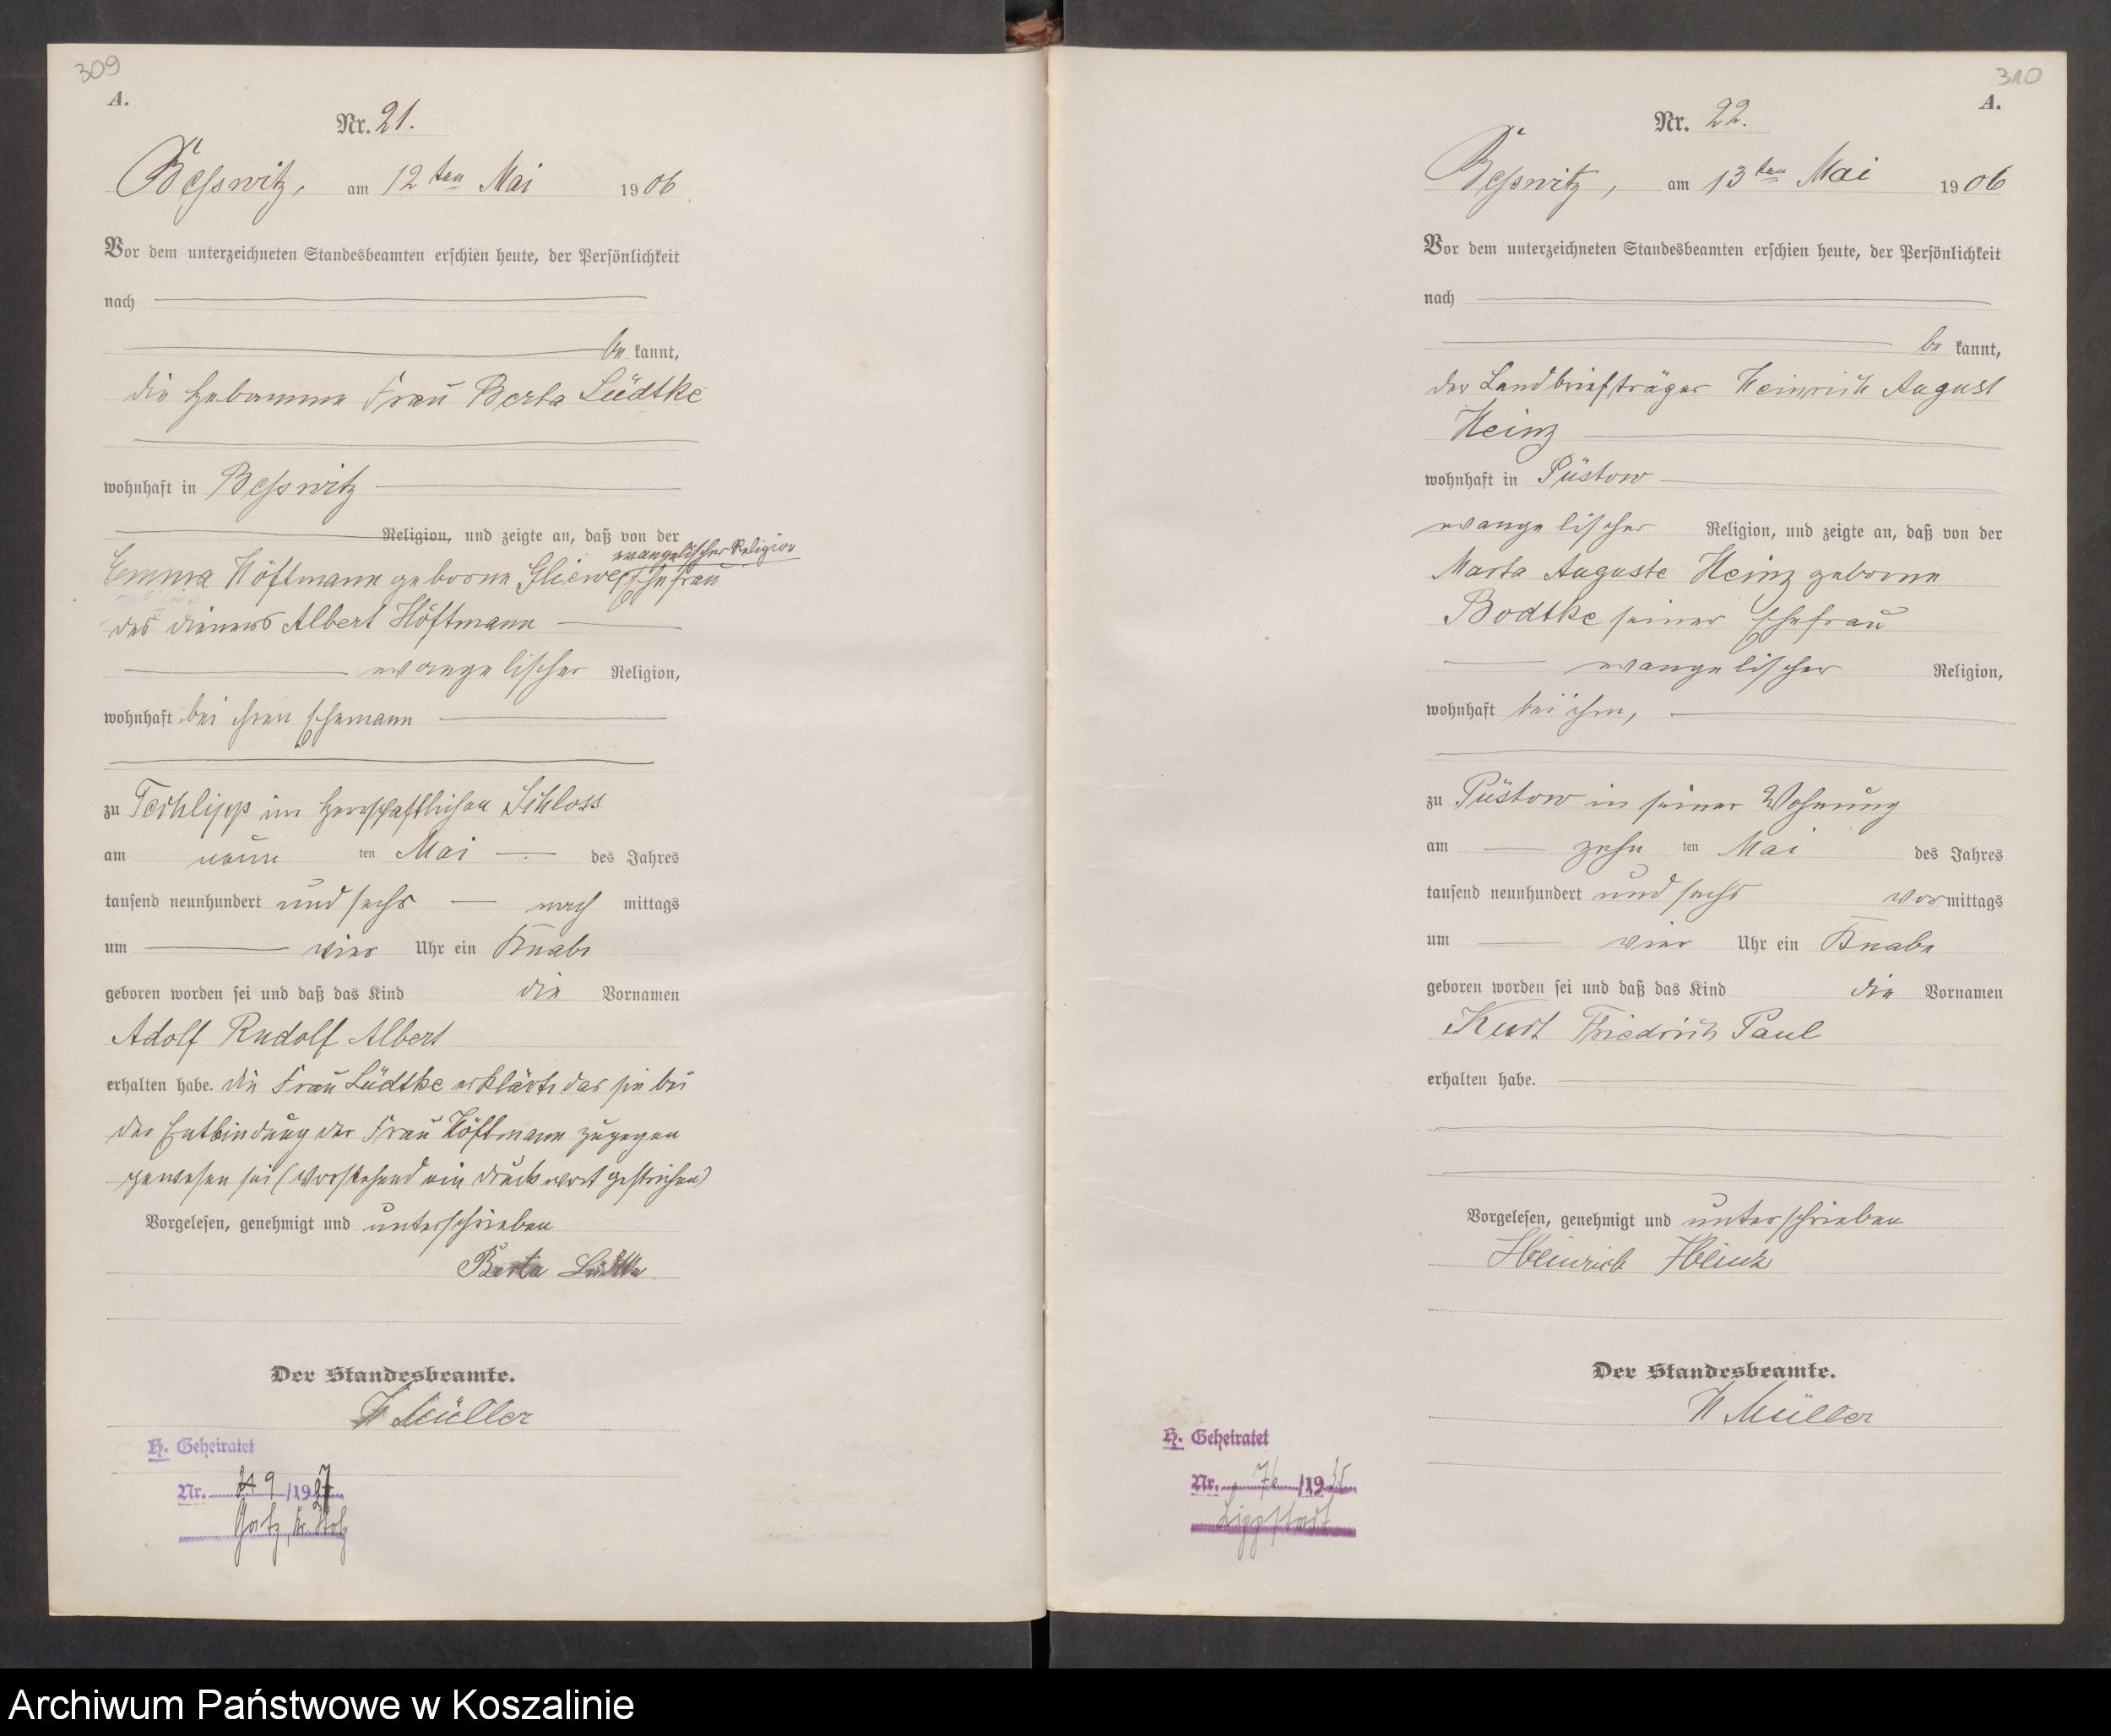 309
A.
Nr. 21.
Beßwitz, am 12ten Mai 1906
Vor dem unterzeichneten Standesbeamten erschien heute, der Persönlichkeit
nach
be kannt,
die Hebamme Frau Berta Lüdtke
wohnhaft in Beßwitz
Religion, und zeigte an, daß von der
evangelischer Religion
Emma Höftmann geborne Gliewe, Ehefrau
des Dieners Albert Höftmann
evangelischer Religion,
wohnhaft bei ihren Ehemann
zu Techlipp im herrschaftlichen Schloss
am neun ten Mai des Jahres
tausend neunhundert und sechs nach mittags
um vier Uhr ein Knabe
geboren worden sei und daß das Kind die Vornamen
Adolf Rudolf Albert
erhalten habe. die Frau Lüdtke erklärte das sie bei
der Entbindung der Frau Höftmann zugegen
gewesen sei (Vorstehend ein Druckwort gestrichen)
Vorgelesen, genehmigt und unterschrieben
Berta Lüdtke
Der Standesbeamte.
H Müller
H. Geheiratet
Nr. 9 /1927
310
A.
Nr. 22.
Beßwitz, am 13ten Mai 1906
Vor dem unterzeichneten Standesbeamten erschien heute, der Persönlichkeit
nach
be kannt,
der Landbriefträger Heinrich August
Heinz
wohnhaft in Püstow
evangelischer Religion, und zeigte an, daß von der
Marta Auguste Heinz geborne
Bodtke seiner Ehefrau
evangelischer Religion,
wohnhaft bei ihm,
zu Püstow in seiner Wohnung
am zehn ten Mai des Jahres
tausend neunhundert und sechs vormittags
um vier Uhr ein Knabe
geboren worden sei und daß das Kind die Vornamen
Kurt Friedrich Paul
erhalten habe.
Vorgelesen, genehmigt und unterschrieben
Heinrich Heinz
Der Standesbeamte.
H Müller
H. Geheiratet
Nr. 76 /1935
Lippstadt
Archiwum Państwowe w Koszalinie